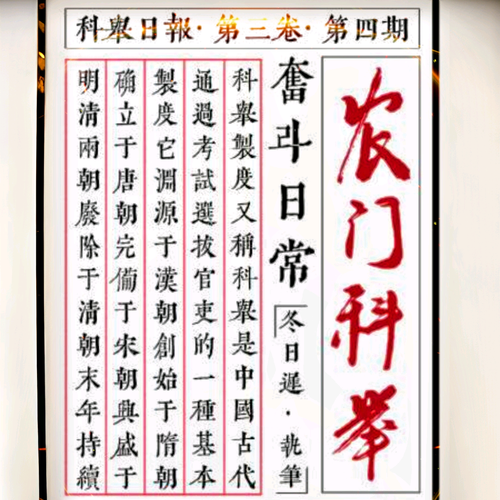 科舉日報·第三卷·第四期
农门科举
奮斗日常
冬日遲·執筆
科舉製度又稱科舉是中國古代
通過考試選拔官吏的一種基本
製度它淵源于漢朝創始于隋朝
确立于唐朝完備于宋朝興盛于
明清兩朝廢除于清朝末年持續